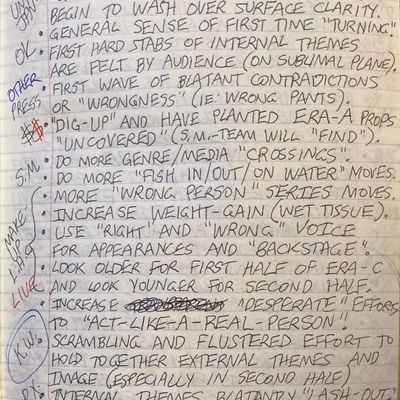 BEGIN TO WASH OVER SURFACE CLARITY.
• GENERAL SENSE OF FIRST TIME "TURNING".
OK • FIRST HARD STABS OF INTERNAL THEMES
ARE FELT BY AUDIENCE (ON SUBLIMAL PLANE).
OTHER PRESS • FIRST WAVE OF BLATANT CONTRADICTIONS
OR "WRONGNESS" (IE: WRONG PANTS).
$$ • "DIG-UP" AND HAVE PLANTED ERA-A PROPS
"UNCOVERED" (S.M.-TEAM WILL "FIND").
S.M. • DO MORE GENRE/MEDIA "CROSSINGS".
• DO MORE "FISH IN/OUT/ON WATER" MOVES.
• MORE "WRONG PERSON" SERIES MOVES.
MAKE UP • INCREASE WEIGHT-GAIN (WET TISSUE).
• USE "RIGHT" AND "WRONG" VOICE
FOR APPEARANCES AND "BACKSTAGE".
• LOOK OLDER FOR FIRST HALF OF ERA-C
AND LOOK YOUNGER FOR SECOND HALF.
LIVE • INCREASE "DESPERATE" EFFORTS
TO "ACT-LIKE-A-REAL-PERSON".
K.W. • SCRAMBLING AND FLUSTERED EFFORT TO
HOLD TOGETHER EXTERNAL THEMES AND
IMAGE (ESPECIALLY IN SECOND HALF)
• INTERNAL THEMES BLATANTLY "LASH-OUT"